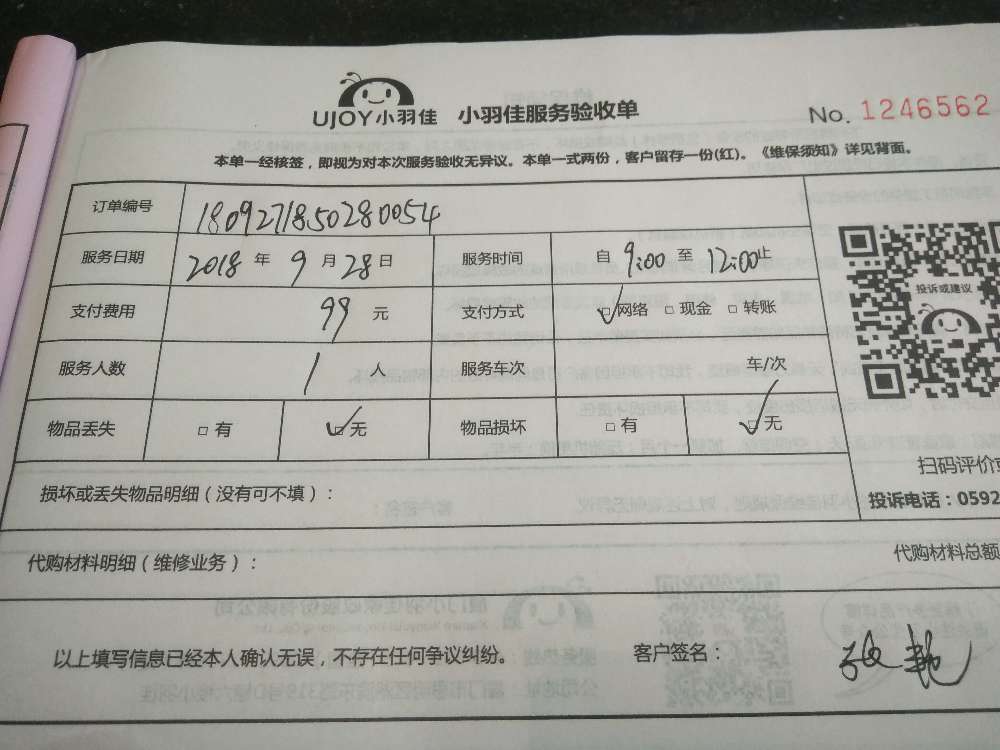 UJOY小羽佳 小羽佳服务验收单 No. 1246562
本单一经核签，即视为对本次服务验收无异议。本单一式两份，客户留存一份(红)。《维保须知》详见背面。
订单编号 1809271850280054
服务日期 2018 年 9 月 28 日 服务时间 自 9:00 至 12:00 止
投诉或建议
支付费用 99 元 支付方式 □网络 □现金 □转账
服务人数 1 人 服务车次 车/次
物品丢失 □有 □无 物品损坏 □有 □无
扫码评价
损坏或丢失物品明细（没有可不填）：
投诉电话：0592
代购材料明细（维修业务）： 代购材料总额
以上填写信息已经本人确认无误，不存在任何争议纠纷。 客户签名：